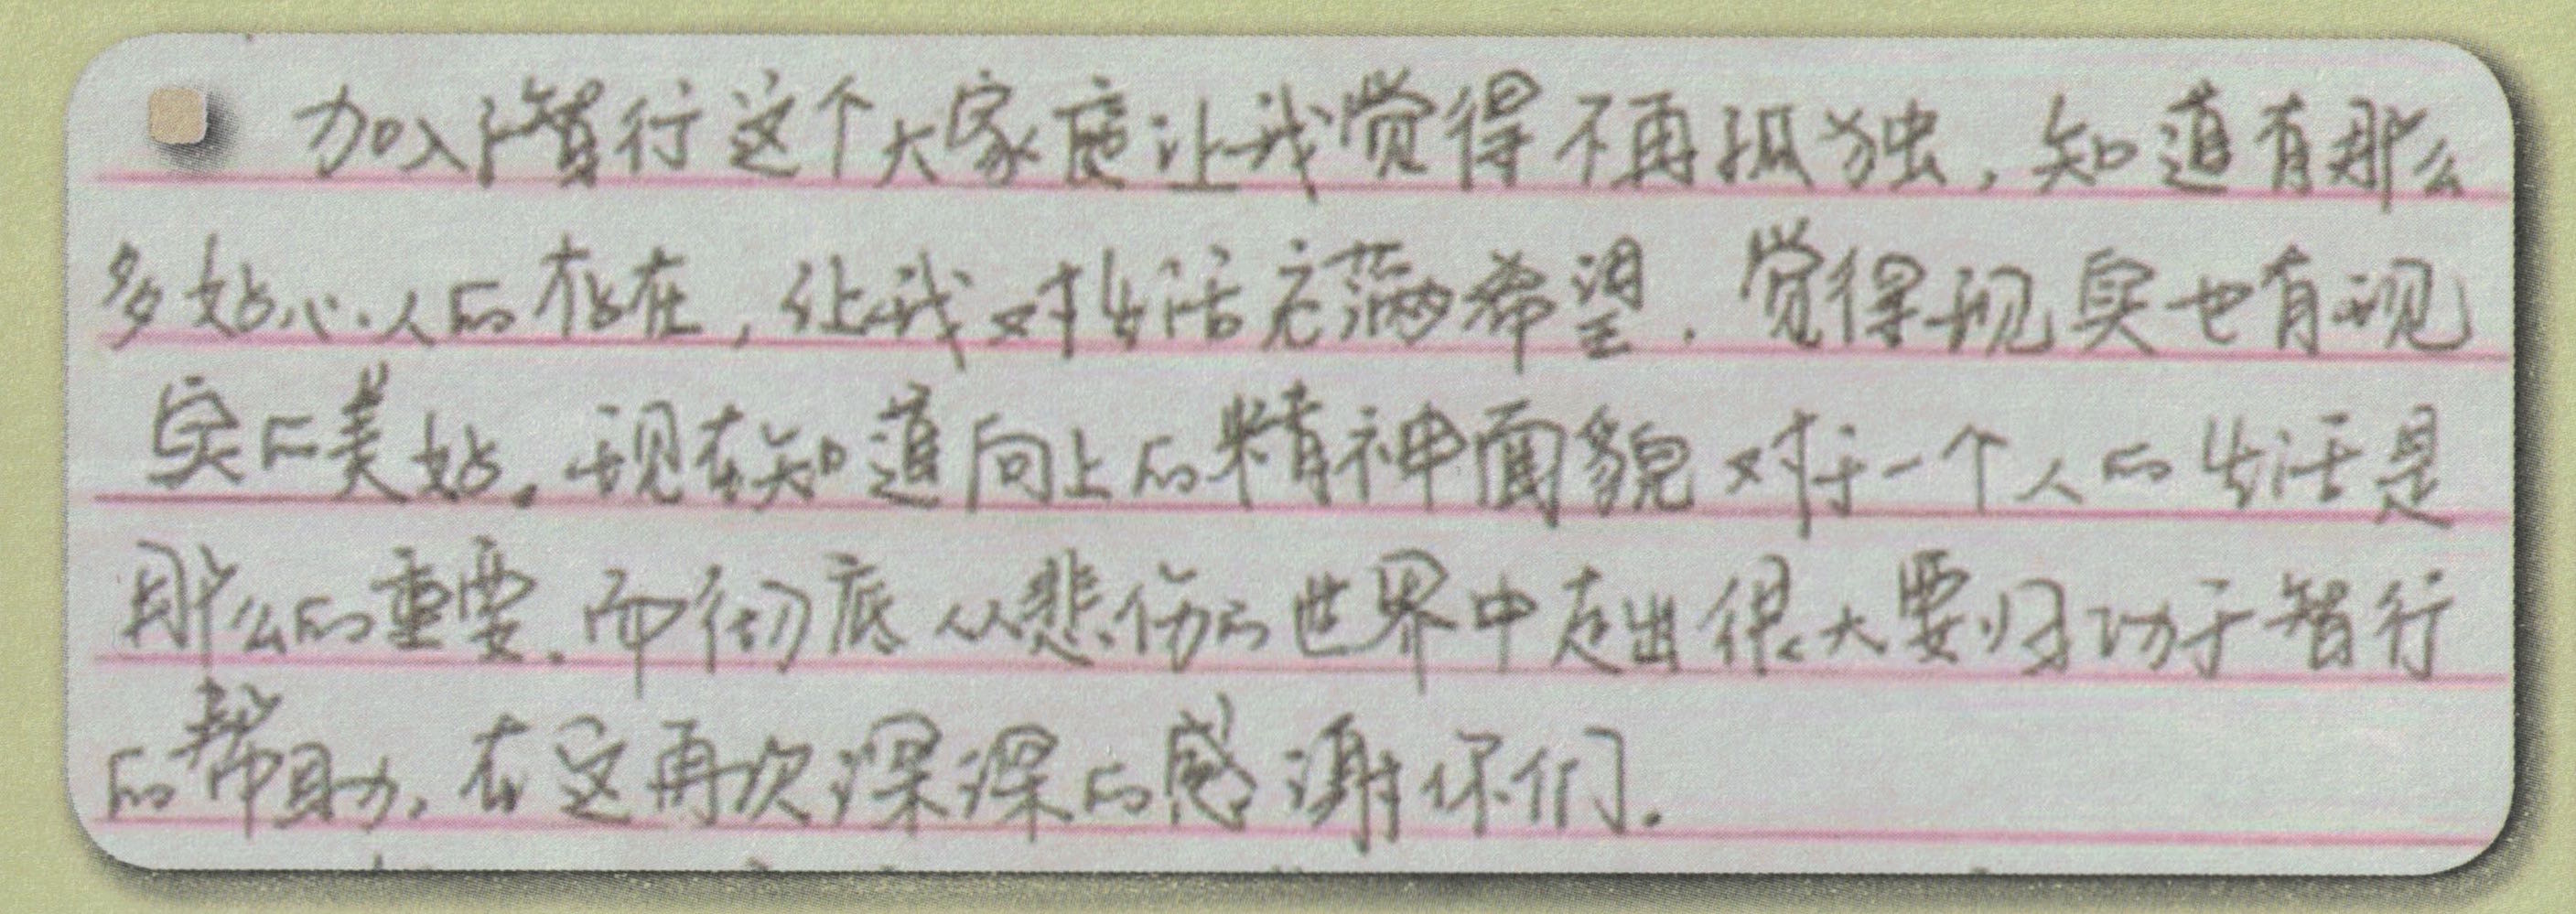 加入智行这个大家庭让我觉得不再孤独，知道有那么
多好心人的存在，让我对生活充满希望．觉得现实也有现
实的美好。现在知道向上的精神面貌对于一个人的生活是
那么的重要．而彻底从悲伤的世界中走出很大要归功于智行
的帮助，在这再次深深的感谢你们．